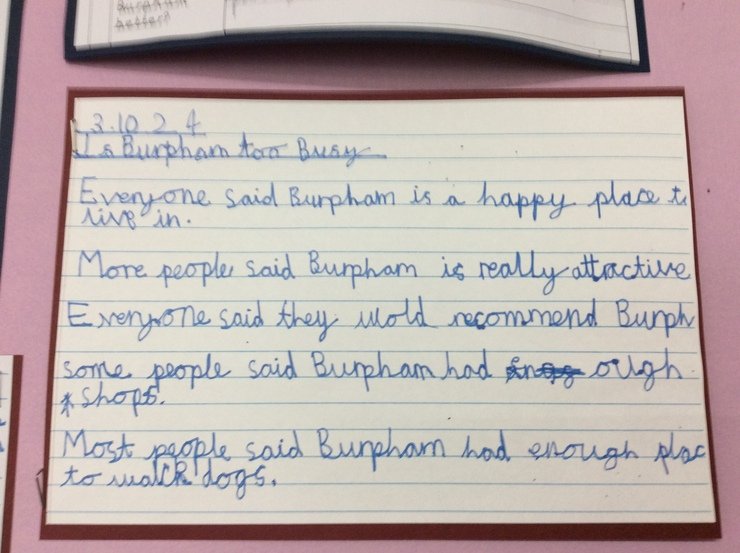 Burpham
better?
3.10.24
Is Burpham too Busy
Everyone said Burpham is a happy place to
live in.
More people said Burpham is really attractive
Everyone said they wold recommend Burph
some people said Burpham had ough
shops.
Most people said Burpham had enough plac
to walk dogs.